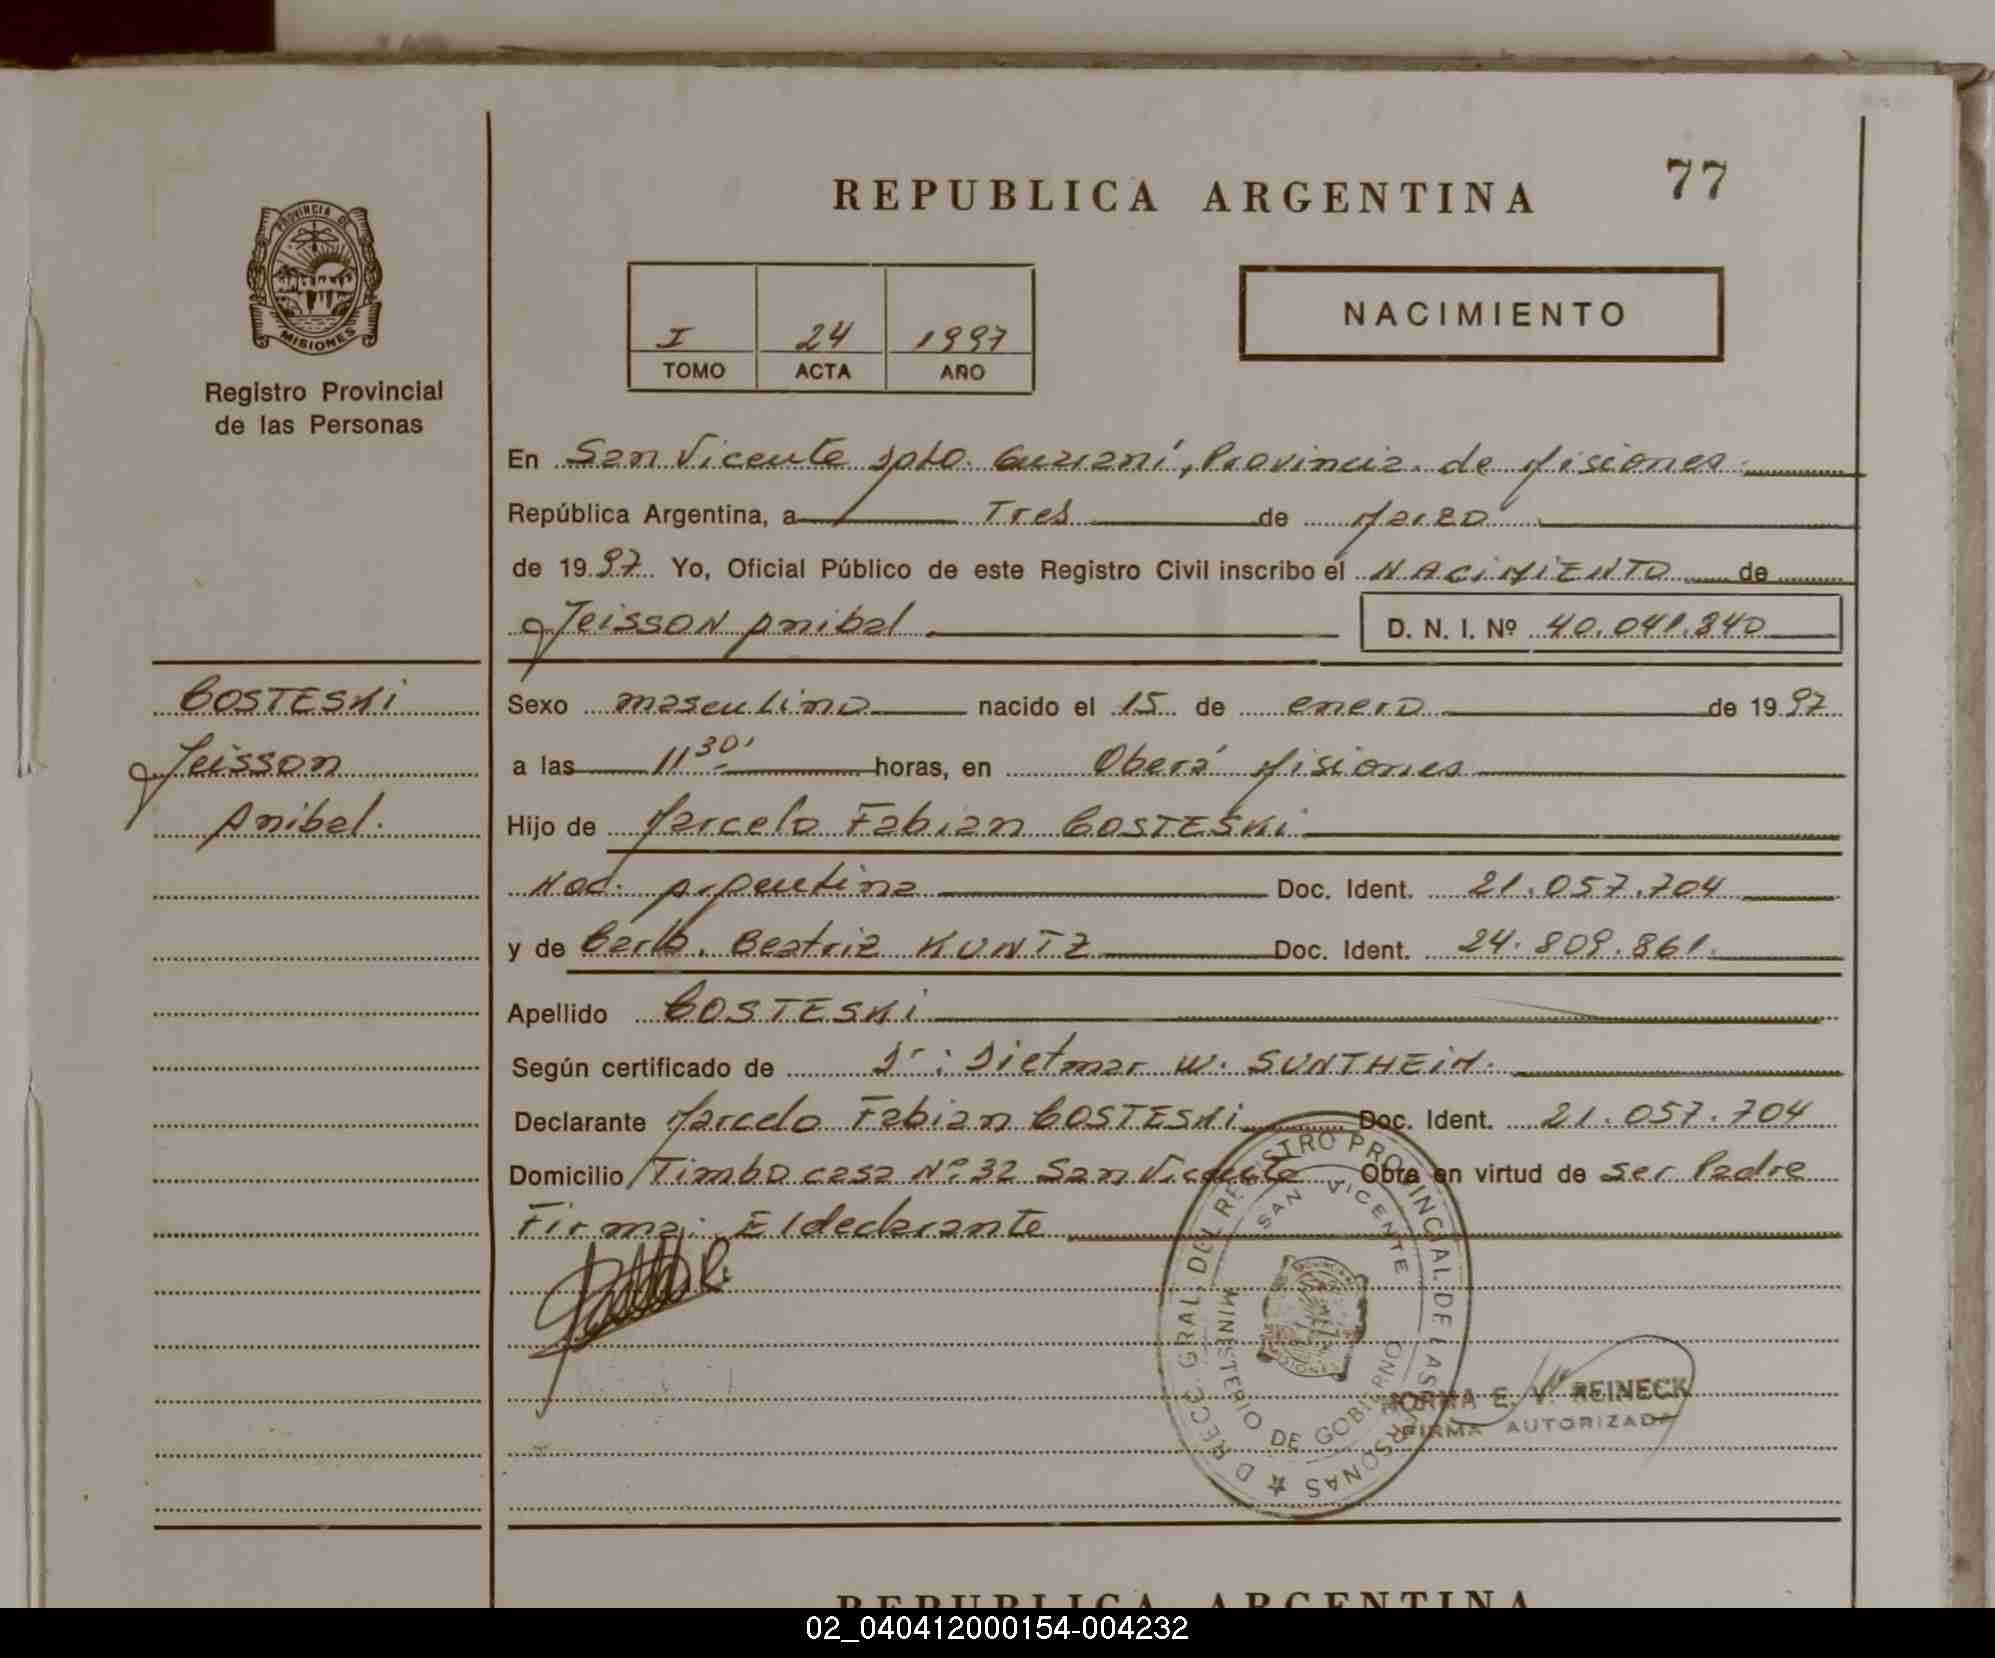 REPUBLICA ARGENTINA
77
PROVINCIA DE
MISIONES
Registro Provincial
de las Personas
I 24 1997
TOMO ACTA AÑO
NACIMIENTO
En San Vicente Dpto. Guaraní, Provincia de Misiones
República Argentina, a Tres de Marzo
de 1997 Yo, Oficial Público de este Registro Civil inscribo el NACIMIENTO de
Jeisson Anibal
D. N. I. Nº 40.041.840
COSTESKi
Jeisson
Anibal.
Sexo masculino nacido el 15 de enero de 1997
a las 11 30' horas, en Oberá Misiones
Hijo de Marcelo Fabian COSTESKi
Nac. Argentina Doc. Ident. 21.057.704
y de Beatriz KUNTZ Doc. Ident. 24.809.861.
Apellido COSTESKi
Según certificado de Dr: Dietmar W. SUNTHEiM.
Declarante Marcelo Fabian COSTESKi Doc. Ident. 21.057.704
Domicilio Timbo casa Nº 32 San Vicente Obra en virtud de ser Padre
Firma: El declarante
DIRECC. GRAL. DEL REGISTRO PROVINCIAL DE LAS PERSONAS
SAN VICENTE
MINISTERIO DE GOBIERNO
NORMA E. V. REINECK
FIRMA AUTORIZADA
REPUBLICA ARGENTINA
02_040412000154-004232